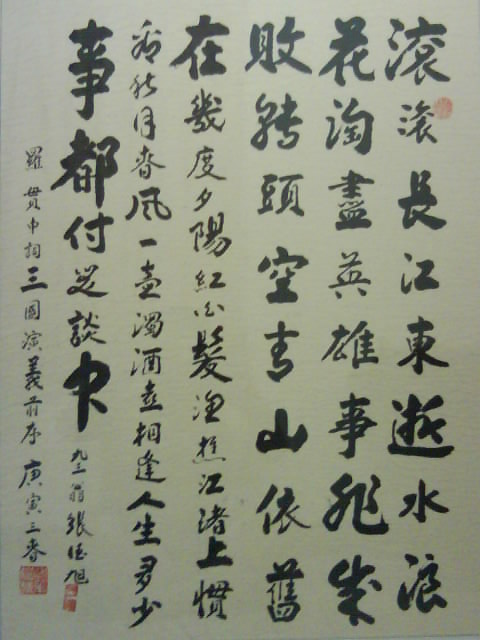 滚滚長江東逝水浪
花淘盡英雄事非成
敗轉頭空青山依舊
在幾度夕陽紅白髮渔樵江渚上慣
看秋月春風一壺濁酒喜相逢人生多少
事都付笑談中
九二翁張德旭
羅貫中詞三國演義前序庚寅三春